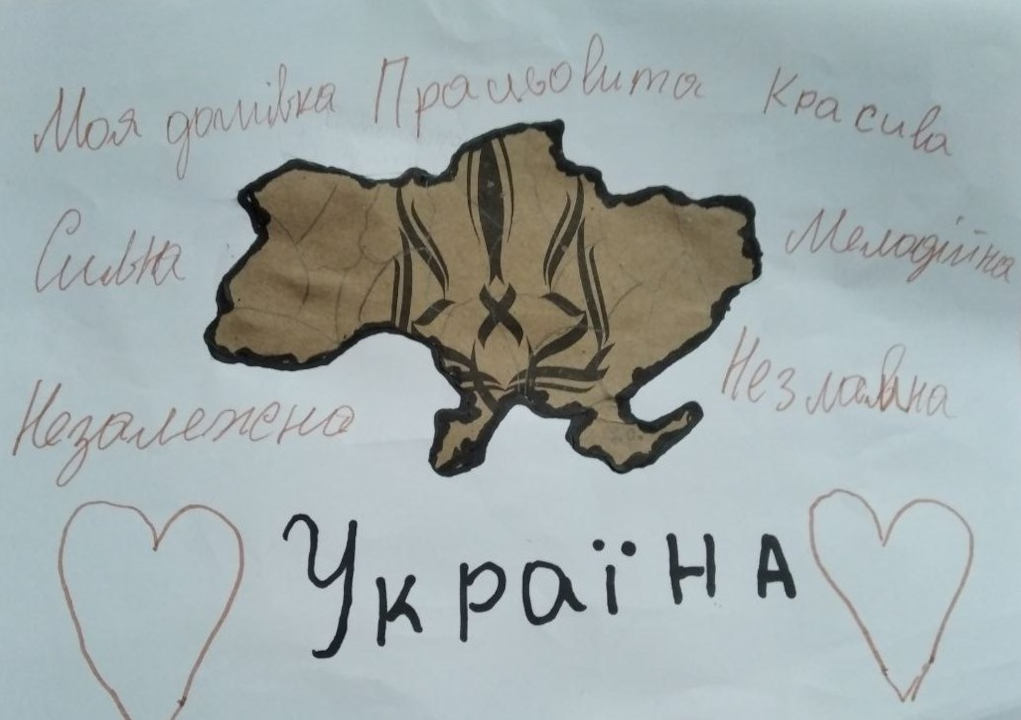 Моя домівка Працьовита Красива
Сильна Мелодійна
Незалежна Незламна
Україна